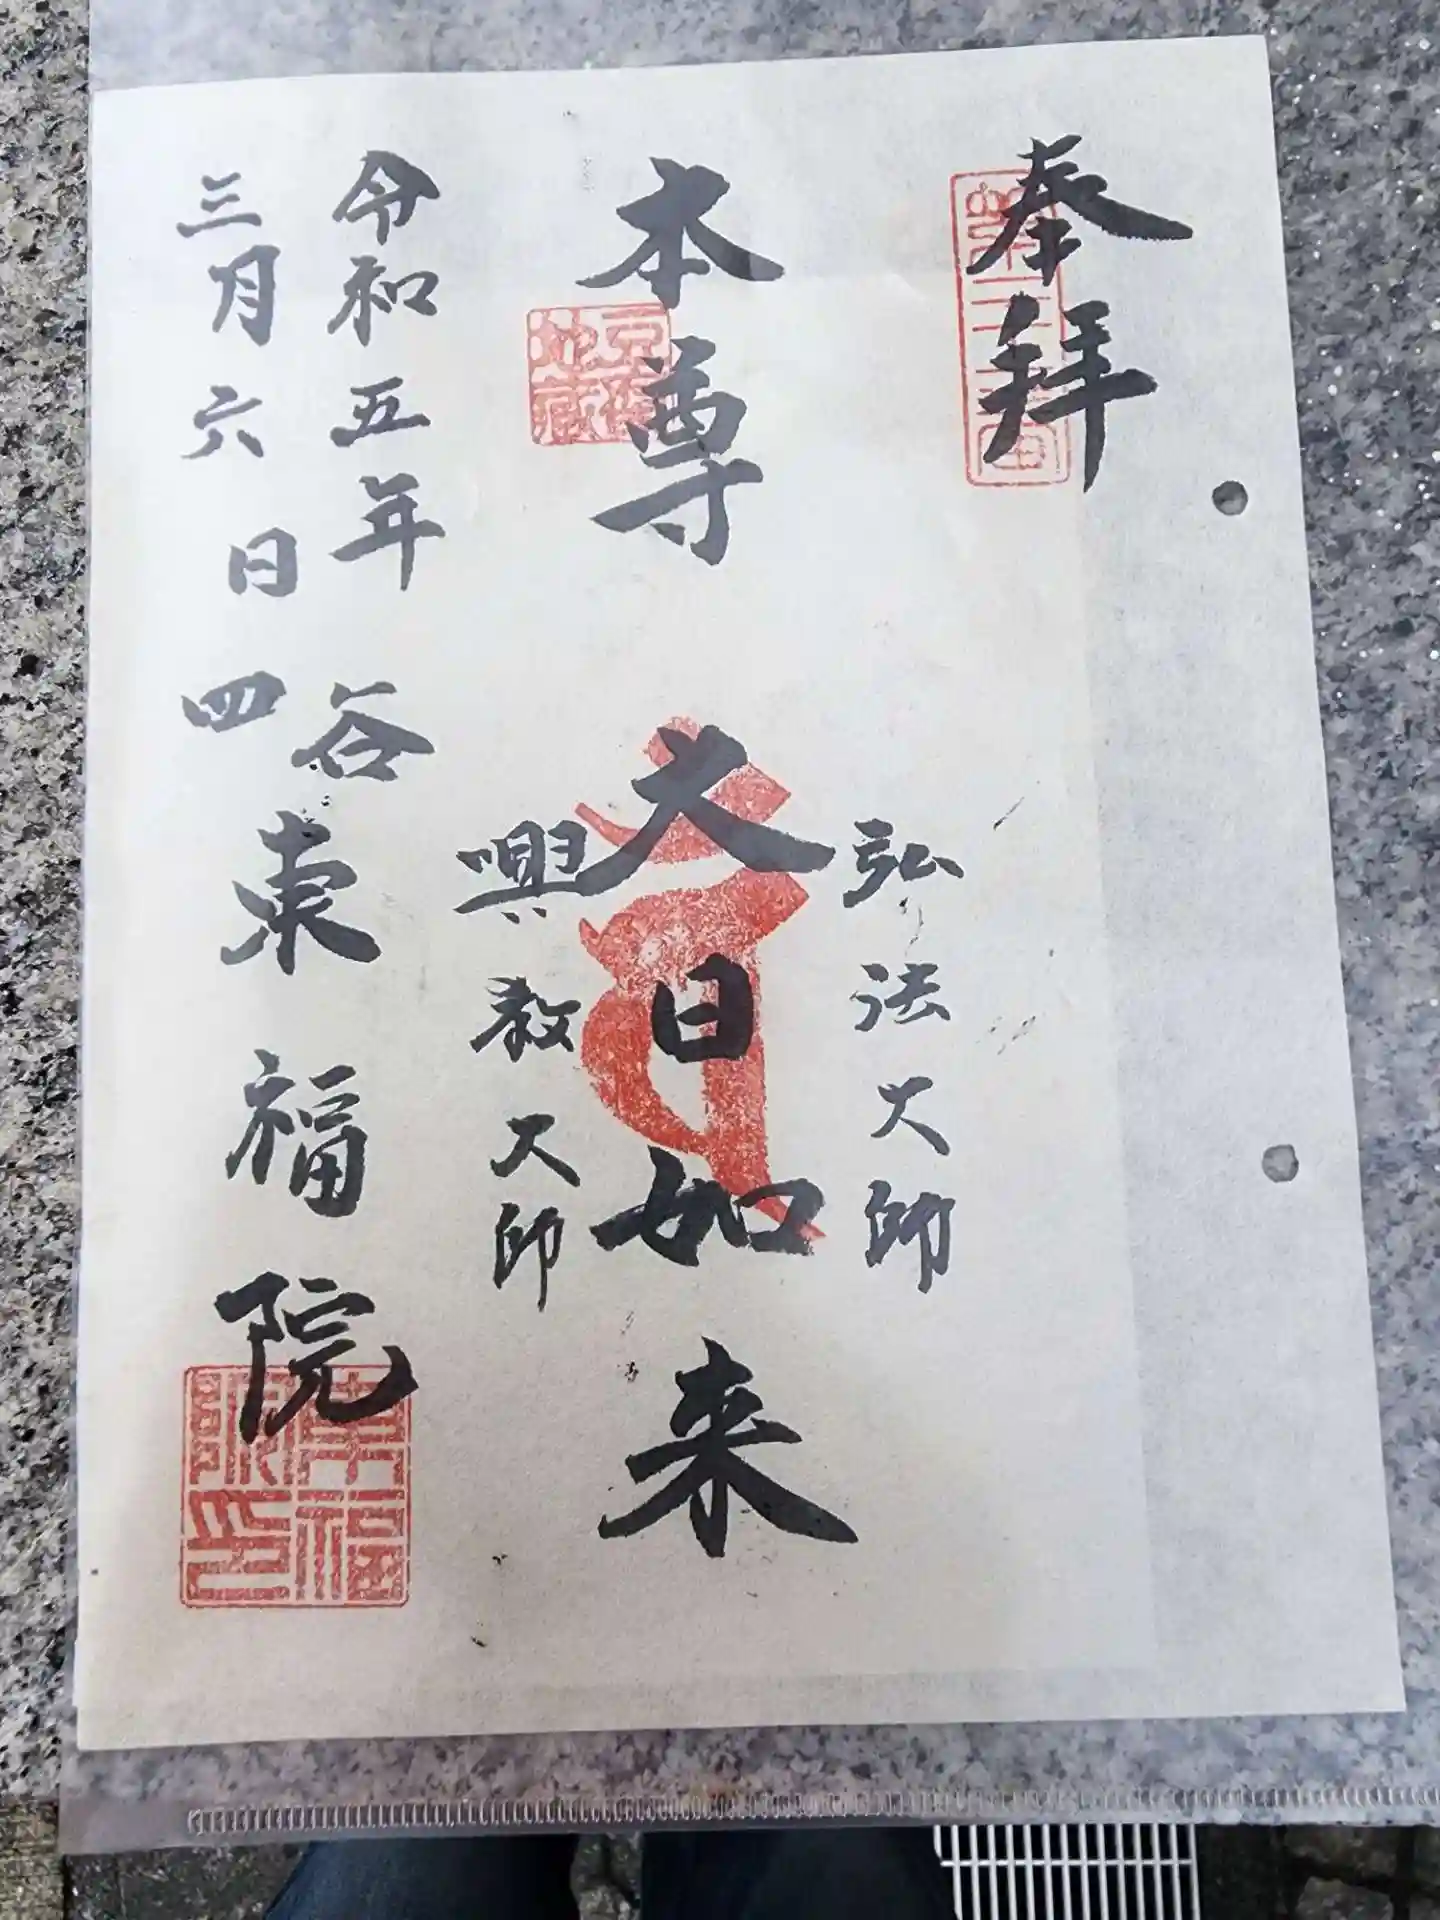 奉拝
弘法大師
本尊 大日如来
興教大師
令和五年
三月六日
四谷
東福院
東福
院印